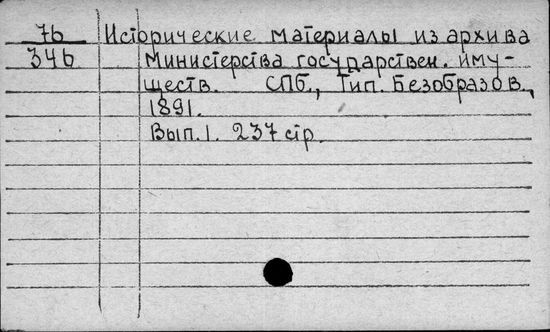 7б Исторические материалы из архива
34б Министерства государствен. иму-
ществ. СПб., Тип. Безобразов.,
1891.
Вып. 1. 237 стр.